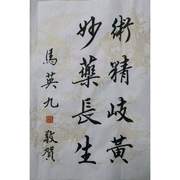 術精岐黃
妙藥長生
馬英九 敬賀